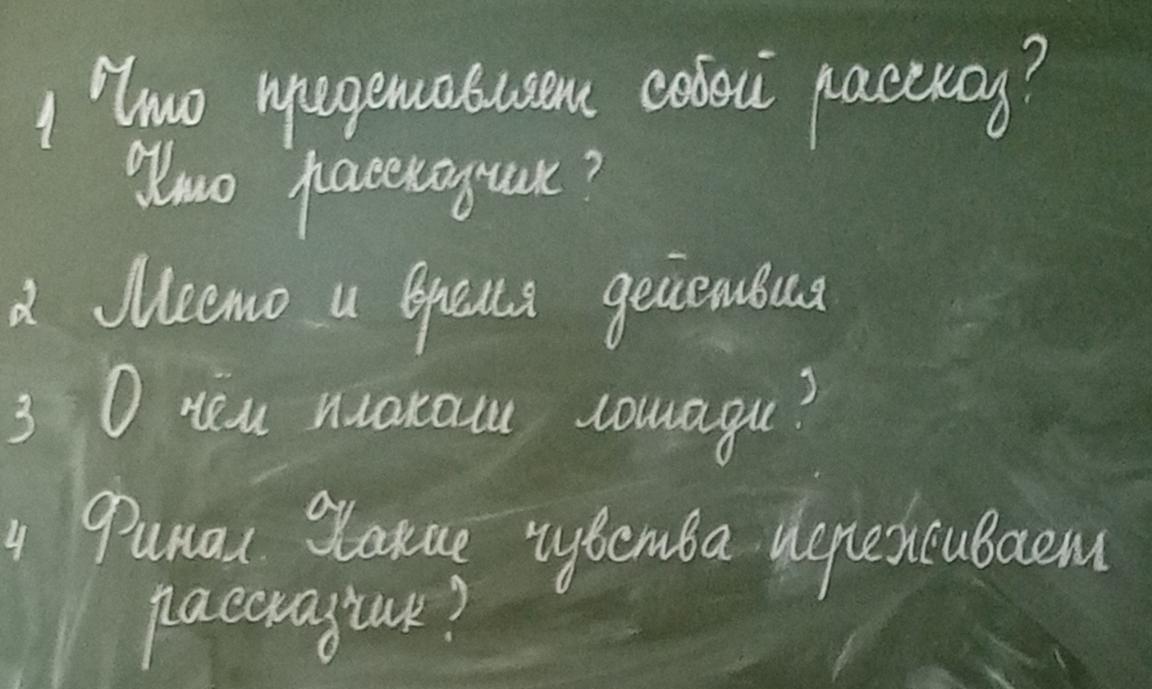 1 Что представляет собой рассказ?
Кто рассказчик?
2 Место и время действия
3 О чём плакали лошади?
4 Финал. Какие чувства переживает
рассказчик?